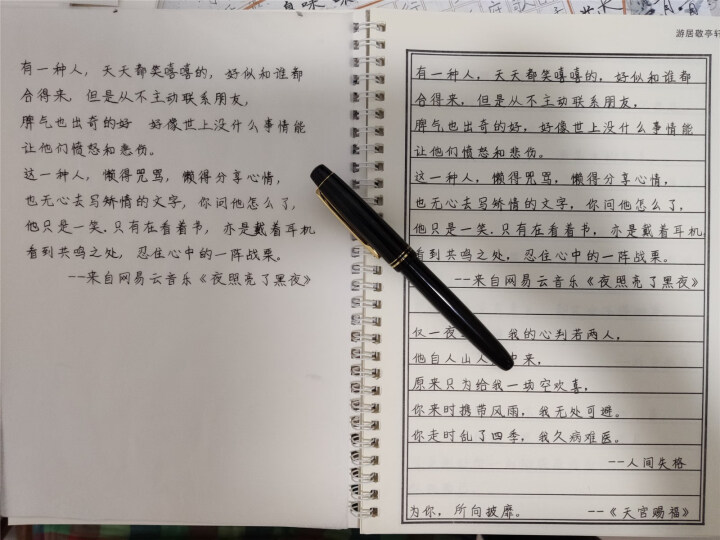 有一种人，天天都笑嘻嘻的，好似和谁都
合得来，但是从不主动联系朋友，
脾气也出奇的好 好像世上没什么事情能
让他们愤怒和悲伤。
这一种人，懒得咒骂，懒得分享心情，
也无心去写矫情的文字，你问他怎么了，
他只是一笑.只有在看着书，亦是戴着耳机
看到共鸣之处，忍住心中的一阵战栗。
--来自网易云音乐《夜照亮了黑夜》
游居敬亭轩
有一种人，天天都笑嘻嘻的，好似和谁都
合得来，但是从不主动联系朋友，
脾气也出奇的好，好像世上没什么事情能
让他们愤怒和悲伤。
这一种人，懒得咒骂，懒得分享心情，
也无心去写矫情的文字，你问他怎么了，
他只是一笑.只有在看着书，亦是戴着耳机
看到共鸣之处，忍住心中的一阵战栗。
--来自网易云音乐《夜照亮了黑夜》
仅一夜 我的心判若两人，
他自人山人 中来，
原来只为给我一场空欢喜，
你来时携带风雨，我无处可避。
你走时乱了四季，我久病难医。
--人间失格
为你，所向披靡。 --《天官赐福》